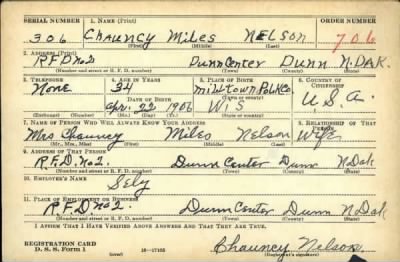 SERIAL NUMBER 1. NAME (Print) ORDER NUMBER
306 Chauncy Miles NELSON 706
(First) (Middle) (Last)
2. ADDRESS (Print)
RFD No 2 Dunn Center Dunn N.DAK.
(Number and street or R. F. D. number) (Town) (County) (State)
3. TELEPHONE 4. AGE IN YEARS 5. PLACE OF BIRTH 6. COUNTRY OF CITIZENSHIP
None 34 Milltown Polk Co.
DATE OF BIRTH (Town or county)
Apr. 22 1906 WIS U.S.A.
(Exchange) (Number) (Mo.) (Day) (Yr.) (State or country)
7. NAME OF PERSON WHO WILL ALWAYS KNOW YOUR ADDRESS 8. RELATIONSHIP OF THAT PERSON
Mrs Chauncy Miles Nelson Wife
(Mr., Mrs., Miss) (First) (Middle) (Last)
9. ADDRESS OF THAT PERSON
R.F.D. No 2. Dunn Center Dunn N Dak
(Number and street or R. F. D. number) (Town) (County) (State)
10. EMPLOYER'S NAME
Self
11. PLACE OF EMPLOYMENT OR BUSINESS
R.F.D. No 2. Dunn Center Dunn N Dak
(Number and street or R. F. D. number) (Town) (County) (State)
I AFFIRM THAT I HAVE VERIFIED ABOVE ANSWERS AND THAT THEY ARE TRUE.
REGISTRATION CARD
D. S. S. Form 1 16—17105 Chauncy Nelson
(Registrant's signature)